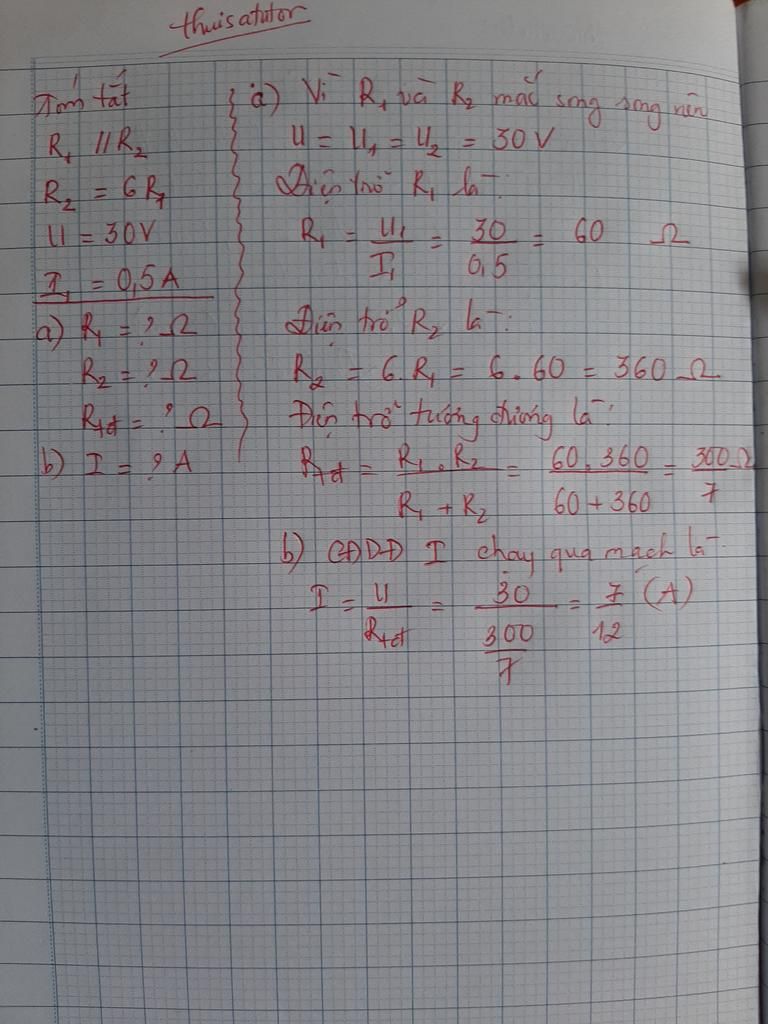 thuisatutor
Tóm tắt
R₁ // R₂
R₂ = 6R₁
U = 30V
I₁ = 0,5A
a) R₁ = ? Ω
R₂ = ? Ω
Rtđ = ? Ω
b) I = ? A
a) Vì R₁ và R₂ mắc song song nên
U = U₁ = U₂ = 30V
Điện trở R₁ là:
R₁ = U₁/I₁ = 30/0,5 = 60 Ω
Điện trở R₂ là:
R₂ = 6.R₁ = 6.60 = 360 Ω
Điện trở tương đương là:
Rtđ = R₁.R₂/R₁ + R₂ = 60.360/60+360 = 300Ω/7
b) CĐDĐ I chạy qua mạch là
I = U/Rtđ = 30/300/7 = 7/12 (A)